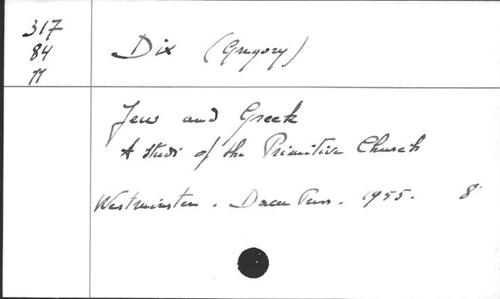 317
84
11
Dix (Gregory)
Jew and Greek
A study of the Primitive Church
Westminster. Dacre Press. 1955. 8°